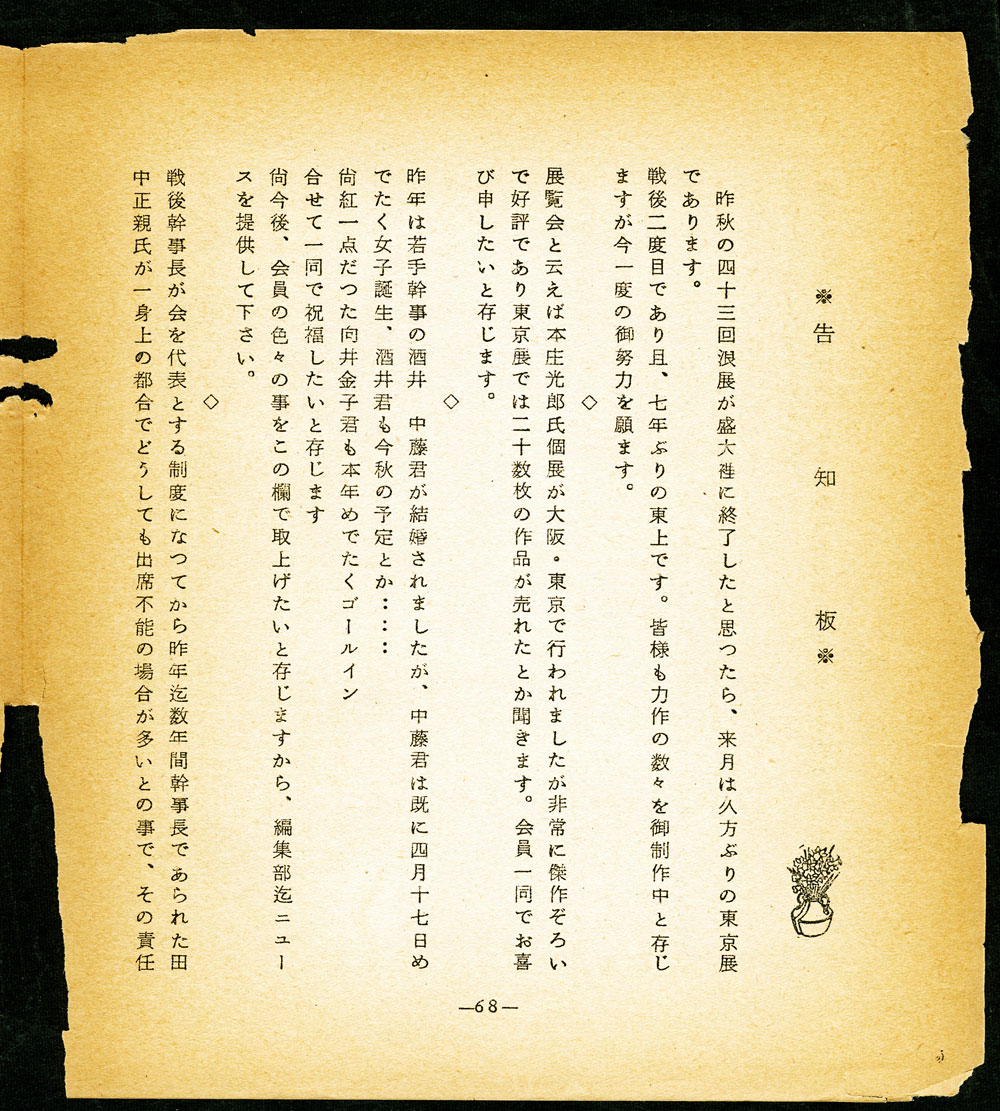 ※告知板※
昨秋の四十三回浪展が盛大裡に終了したと思つたら、来月は久方ぶりの東京展
であります。
戦後二度目であり且、七年ぶりの東上です。皆様も力作の数々を御制作中と存じ
ますが今一度の御努力を願ます。
◇
展覧会と云えば本庄光郎氏個展が大阪・東京で行われましたが非常に傑作ぞろい
で好評であり東京展では二十数枚の作品が売れたとか聞きます。会員一同でお喜
び申したいと存じます。
◇
昨年は若手幹事の酒井 中藤君が結婚されましたが、中藤君は既に四月十七日め
でたく女子誕生、酒井君も今秋の予定とか‥‥
尙紅一点だつた向井金子君も本年めでたくゴールイン
合せて一同で祝福したいと存じます
尙今後、会員の色々の事をこの欄で取上げたいと存じますから、編集部迄ニュー
スを提供して下さい。
◇
戦後幹事長が会を代表とする制度になつてから昨年迄数年間幹事長であられた田
中正親氏が一身上の都合でどうしても出席不能の場合が多いとの事で、その責任
—68—